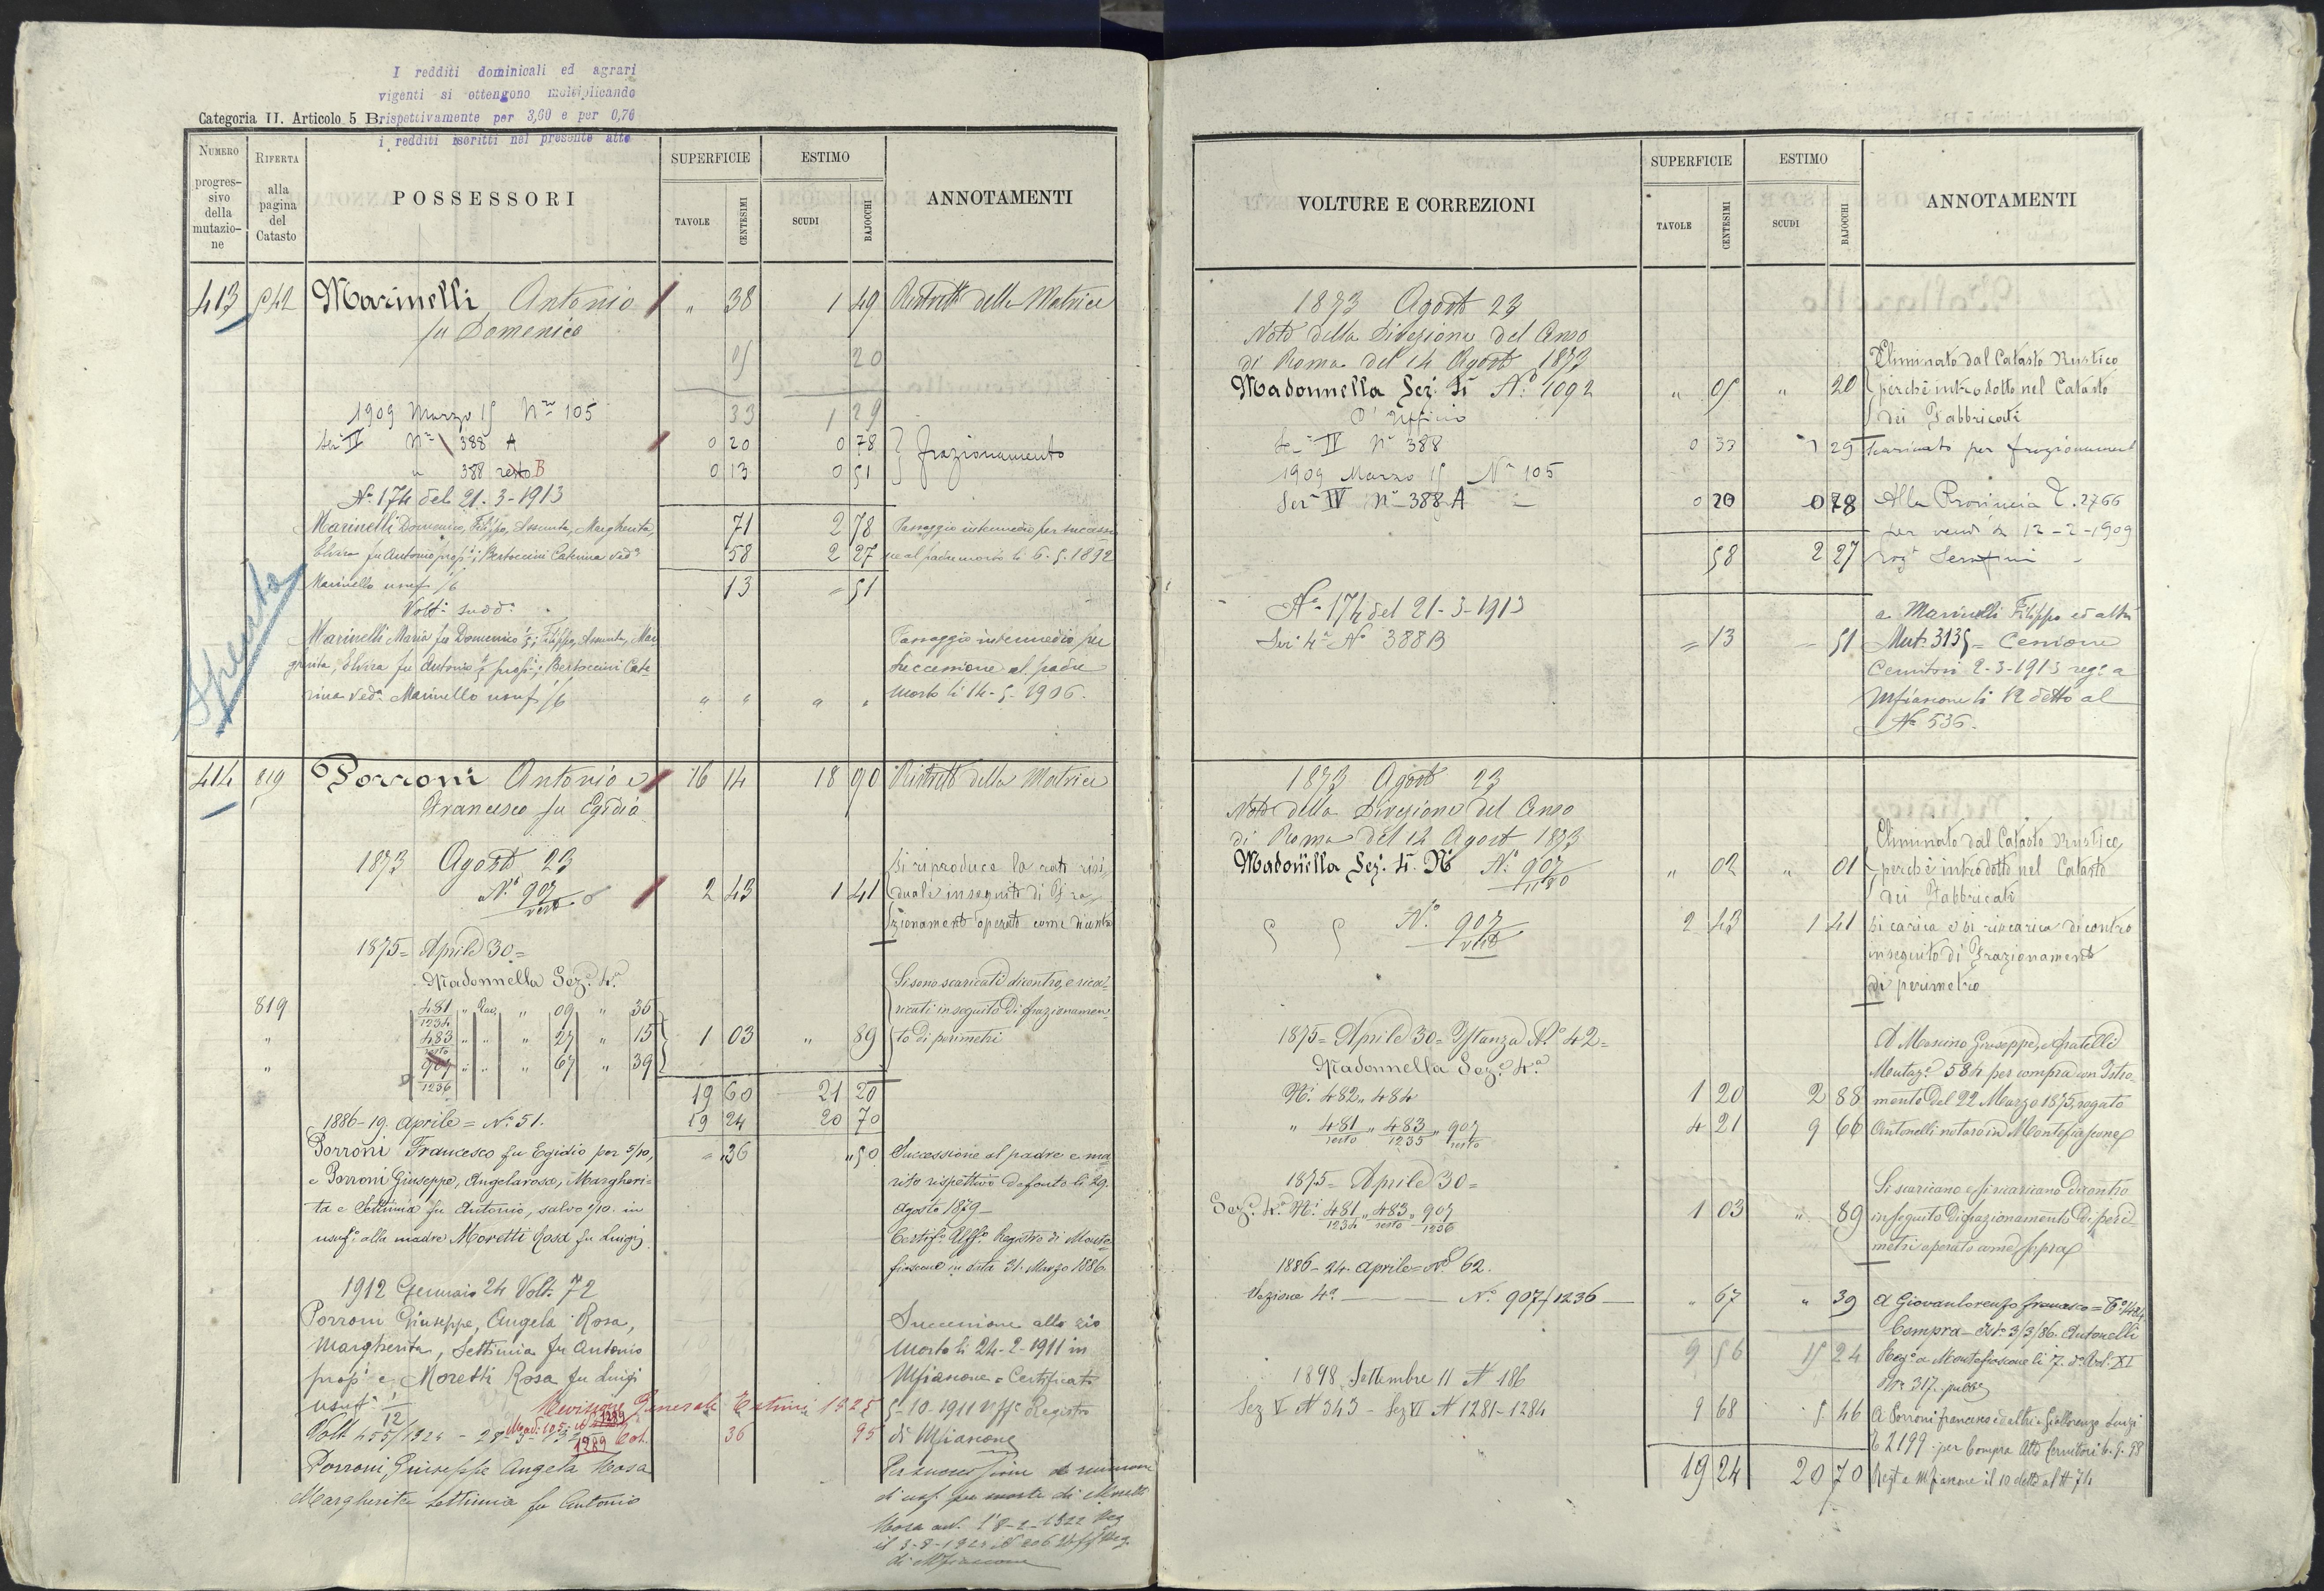 I redditi dominicali ed agrari
vigenti si ottengono moltiplicando
Categoria II. Articolo 5 B rispettivamente per 3,60 e per 0,76
i redditi iscritti nel presente atto
NUMERO progressivo della mutazione
RIFERTA alla pagina del Catasto
POSSESSORI
SUPERFICIE
TAVOLE
CENTESIMI
ESTIMO
SCUDI
BAJOCCHI
ANNOTAMENTI
413 542 Marinelli Antonio " 38 1 49 Ristretto della Matrice
fu Domenico
05 20
1909 Marzo 15 N° 105 33 1 29
Sez IV N° 388 A 0 20 0 78 frazionamento
" 388 resto B 0 13 0 51
N° 174 del 21-3-1913
Marinelli Domenico, Filippo, Assunta, Margherita, 71 2 78 Passaggio intermedio per successio
Elvira fu Antonio prop; Bertoccini Caterina ved 58 2 27 ne al padre morto li 6-5-1892
Marinello usuf 1/6 13 = 51
Volt. sudd.
Marinelli Maria fu Domenico 1/5; Filippo, Assunta, Mar Passaggio intermedio per
gherita, Elvira fu Antonio prop; Bertoccini Cate successione al padre
rina ved. Marinello usuf 1/6 " " " " morto li 14-5-1906.
Spenta
414 819 Porroni Antonio e 16 14 18 90 Ristretto della Matrice
Francesco fu Egidio
1873 Agosto 23 Si riproduce la rata resi
N° 907 resto 2 43 1 41 duale in seguito di Fra
zionamento operato come dicontro
1875 = Aprile 30 =
Madonnella Sez. 4ª Si sono scaricati dicontro, e rica
819 481/1234 " " 09 " 36 ricati in seguito di frazionamen
" 483/resto " " " 27 " 15 1 03 " 89 to di perimetri
" 907/1236 " " " 67 " 39
19 60 21 20
1886 - 19 Aprile = N° 51. 19 24 20 70
Porroni Francesco fu Egidio per 5/10, = " 36 " 50 Successione al padre e ma
e Porroni Giuseppe, Angelarosa, Margheri= rito rispettivo defonto li 29
ta e Settimia fu Antonio, salvo 1/10 in Agosto 1879 -
usuf. alla madre Moretti Rosa fu Luigi Certif° Uff° Registro di Monte=
fiascone in data 31. Marzo 1886.
1912 Gennaio 24 Volt. 72
Porroni Giuseppe, Angela Rosa, Successione allo zio
Margherita, Settimia fu Antonio morto li 24-2-1911 in
prop. e Moretti Rosa fu Luigi Mfiascone = Certificato
usuf. 1/12 Revisione Generale Estimi 1925 5-10-1911 Uff° Registro
Volt 455/1924 - 28-3-1925 1989 36 95 di Mfiascone
Porroni Giuseppe Angela Rosa Per successione di riunione
Margherita Settimia fu Antonio di usuf. per morte di Moretti
Rosa
di Mfiascone
VOLTURE E CORREZIONI
SUPERFICIE
TAVOLE
CENTESIMI
ESTIMO
SCUDI
BAJOCCHI
ANNOTAMENTI
1873 Agosto 23
Nota della Direzione del Censo
di Roma del 14 Agosto 1873 Eliminato dal Catasto Rustico
Madonnella Sez. 4ª N° 1092 " 05 " 20 perchè introdotto nel Catasto
D'Ufficio dei Fabbricati
Sez IV N° 388 0 33 1 29 Scaricato per frazionament
1909 Marzo 15 N° 105
Sez IV N° 388 A 0 20 0 78 Alla Provincia T. 2766
per vend 12-2-1909
58 2 27 rog Serafini
N° 174 del 21-3-1913 a Marinelli Filippo ed altri
Sez 4ª N° 388 B = 13 - 51 Mut. 3135 = Cessione
Cernitori 2-3-1913 reg° a
Mfiascone li 12 detto al
N° 536.
1873 Agosto 23
Nota della Direzione del Censo
di Roma del 14 Agosto 1873 Eliminato dal Catasto Rustico
Madonnella Sez. 4ª N° 907 " 02 " 01 perchè introdotto nel Catasto
dei Fabbricati
N° 907 resto 2 43 1 41 Si carica e si riscarica dicontro
in seguito di Frazionamento
di perimetro
1875 = Aprile 30 = Istanza N° 42 =
Madonnella Sez. 4ª A Moscino Giuseppe, e fratelli
Mutaz. 584 per compra con Istro
N¹ 482 " 484 1 20 2 88 mento del 22 Marzo 1875, rogato
" 481/resto " 483/1235 " 907/resto 4 21 9 66 Antonelli notaro in Montefiascone
1875 = Aprile 30 = Si scaricano e si ricaricano dicontro
Sez. 4ª N¹ 481/1234 " 483/resto " 907/1236 1 03 " 89 in seguito di frazionamento di peri
metri operato come sopra
1886 - 24 Aprile = N° 62.
Sezione 4ª N° 907/1236 " 67 " 39 A Giovanlorenzo Francesco =
Compra - Ist° 3/3/86. Antonelli
9 56 15 24 Reg° a Montefiascone li 7 d° Vol. XI
N° 317. pubb
1898 Settembre 11 N 186
Sez V N 343 - Sez VI N 1281-1284 9 68 5 46 A Porroni Francesco ed altri Luigi
T 2199 per compra Atto Cernitori 6.9.98
19 24 20 70 Reg a Mfiascone il 10 detto al N 74